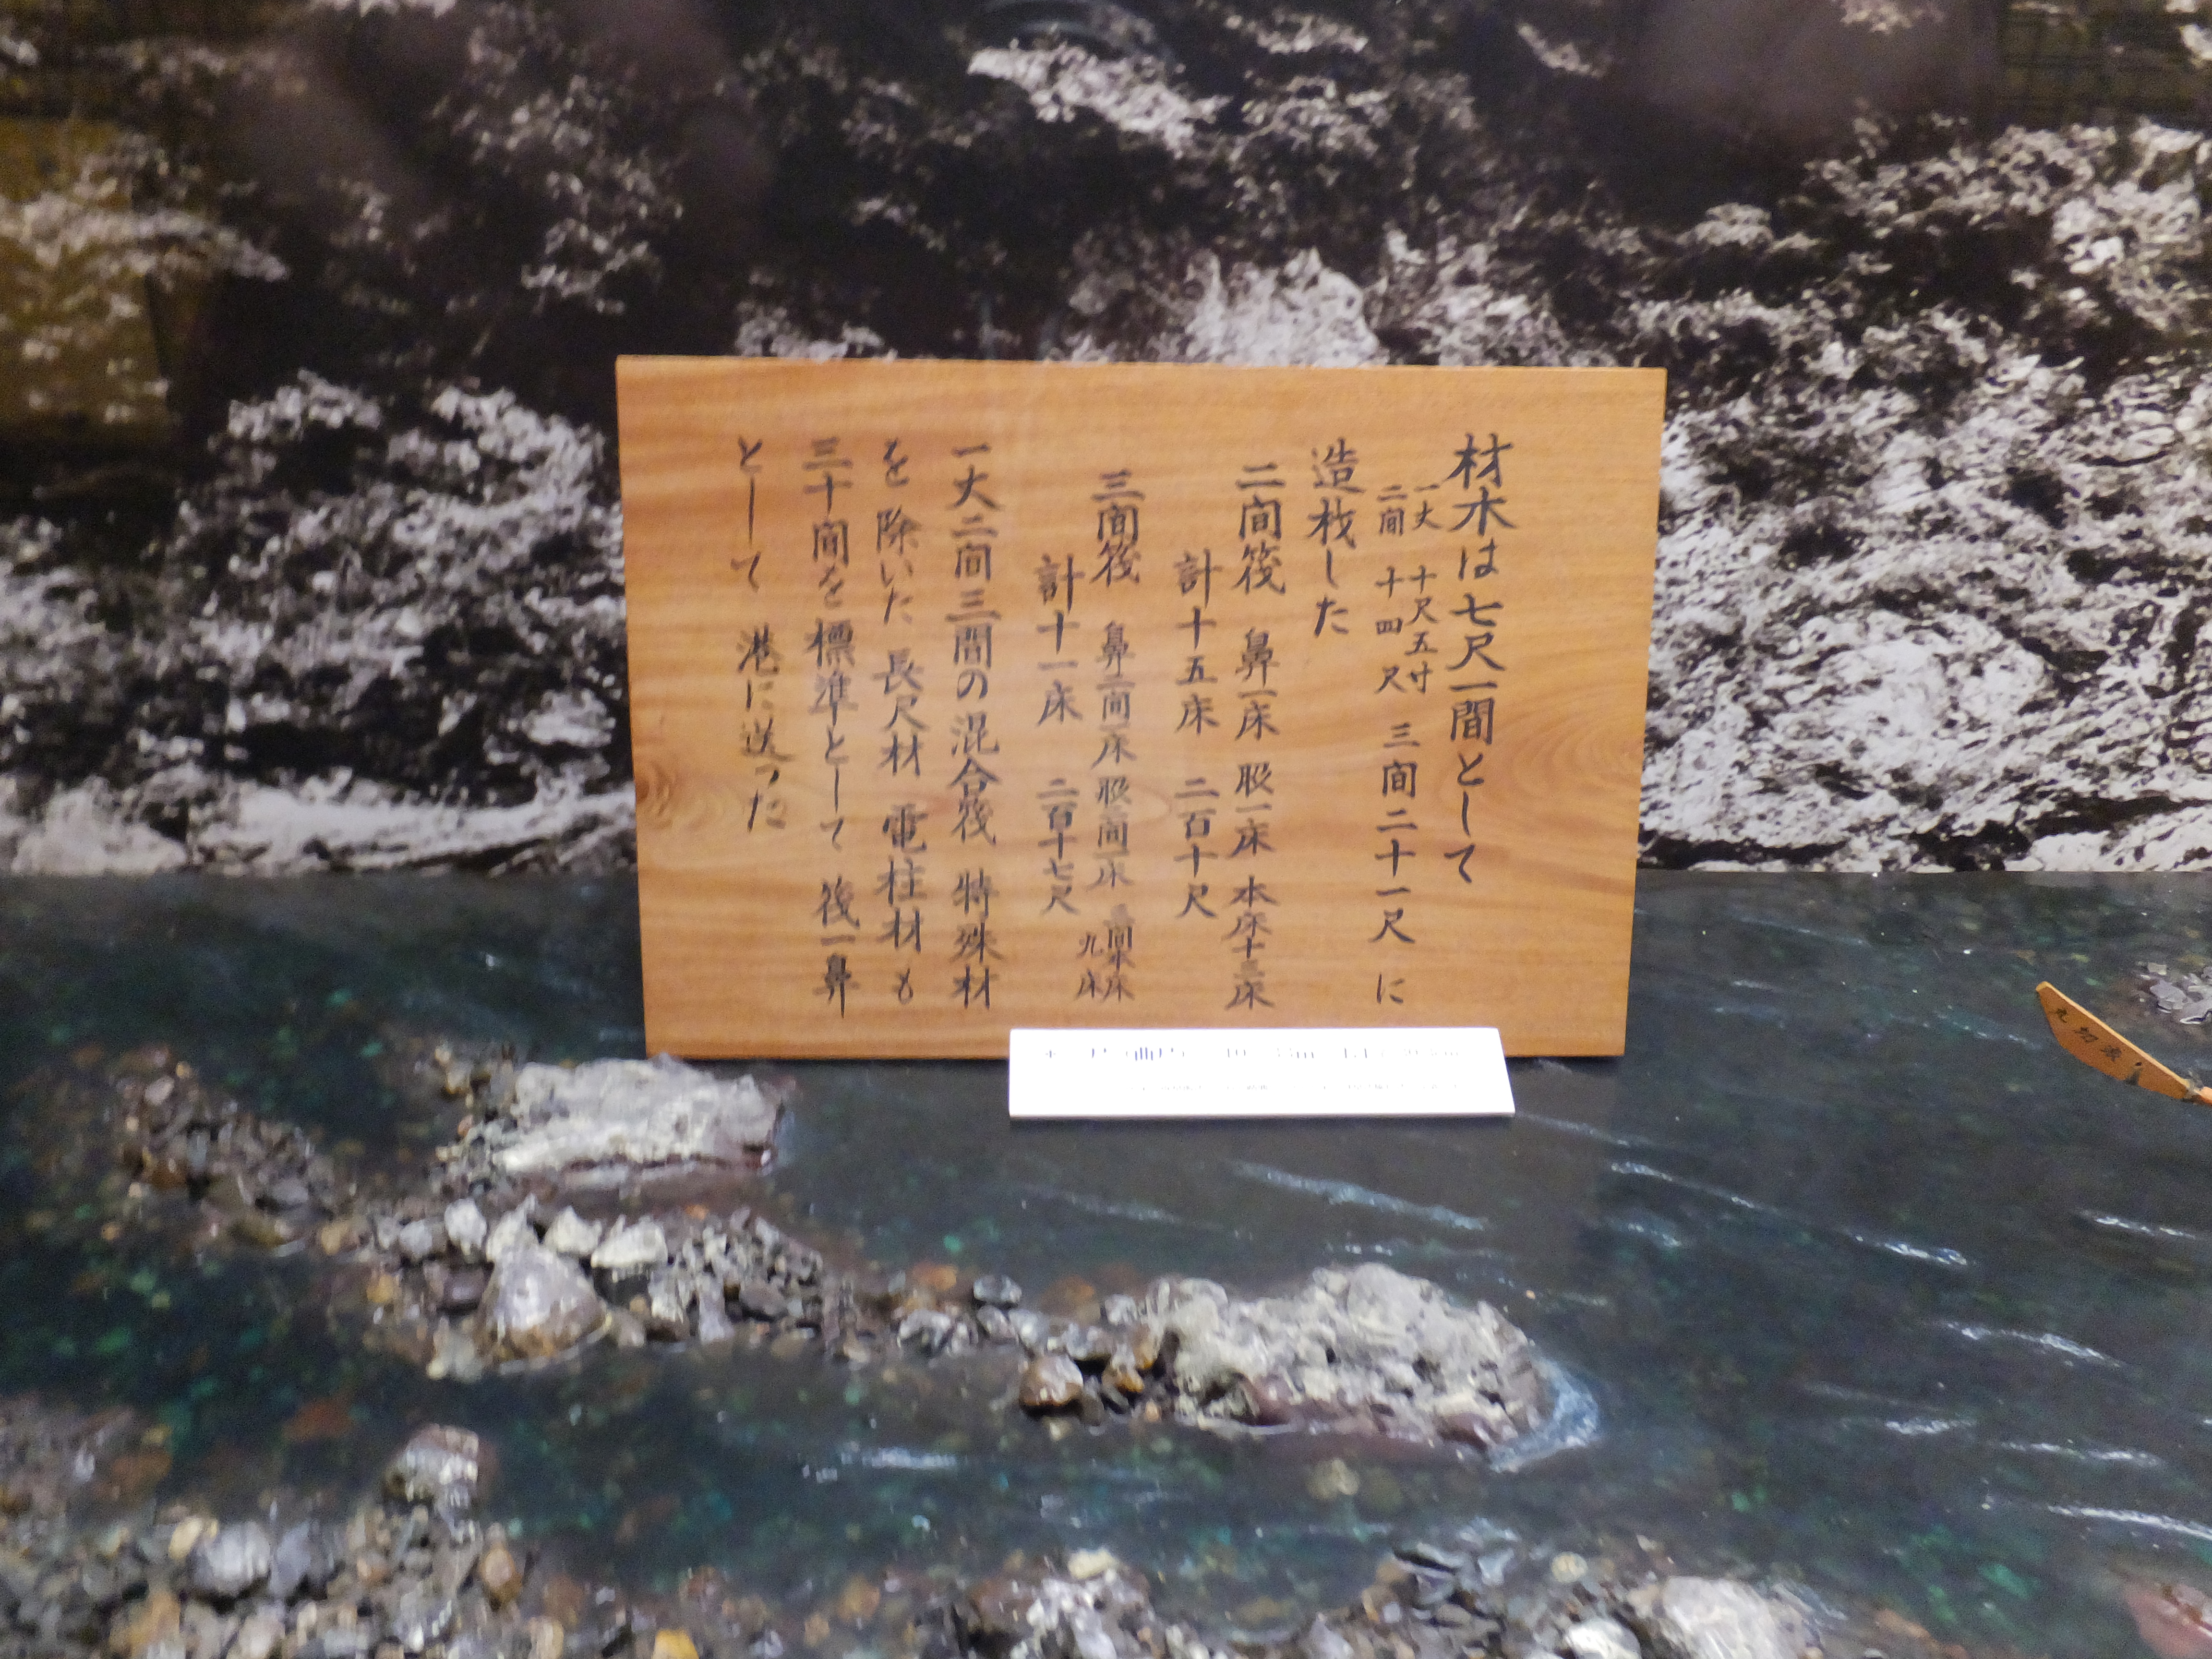 材木は七尺一間として
一丈 十尺五寸
二間 十四尺 三間二十一尺 に
造材した
二間筏 鼻一床 股一床 本床十三床
計十五床 二百十尺
三間筏 鼻二間一床 股二間一床 三間本床
九床
計十一床 二百十七尺
一丈二間三間の混合筏 特殊材
を除いた 長尺材 電柱材も
三十間を標準として 筏一鼻
として 港に送った